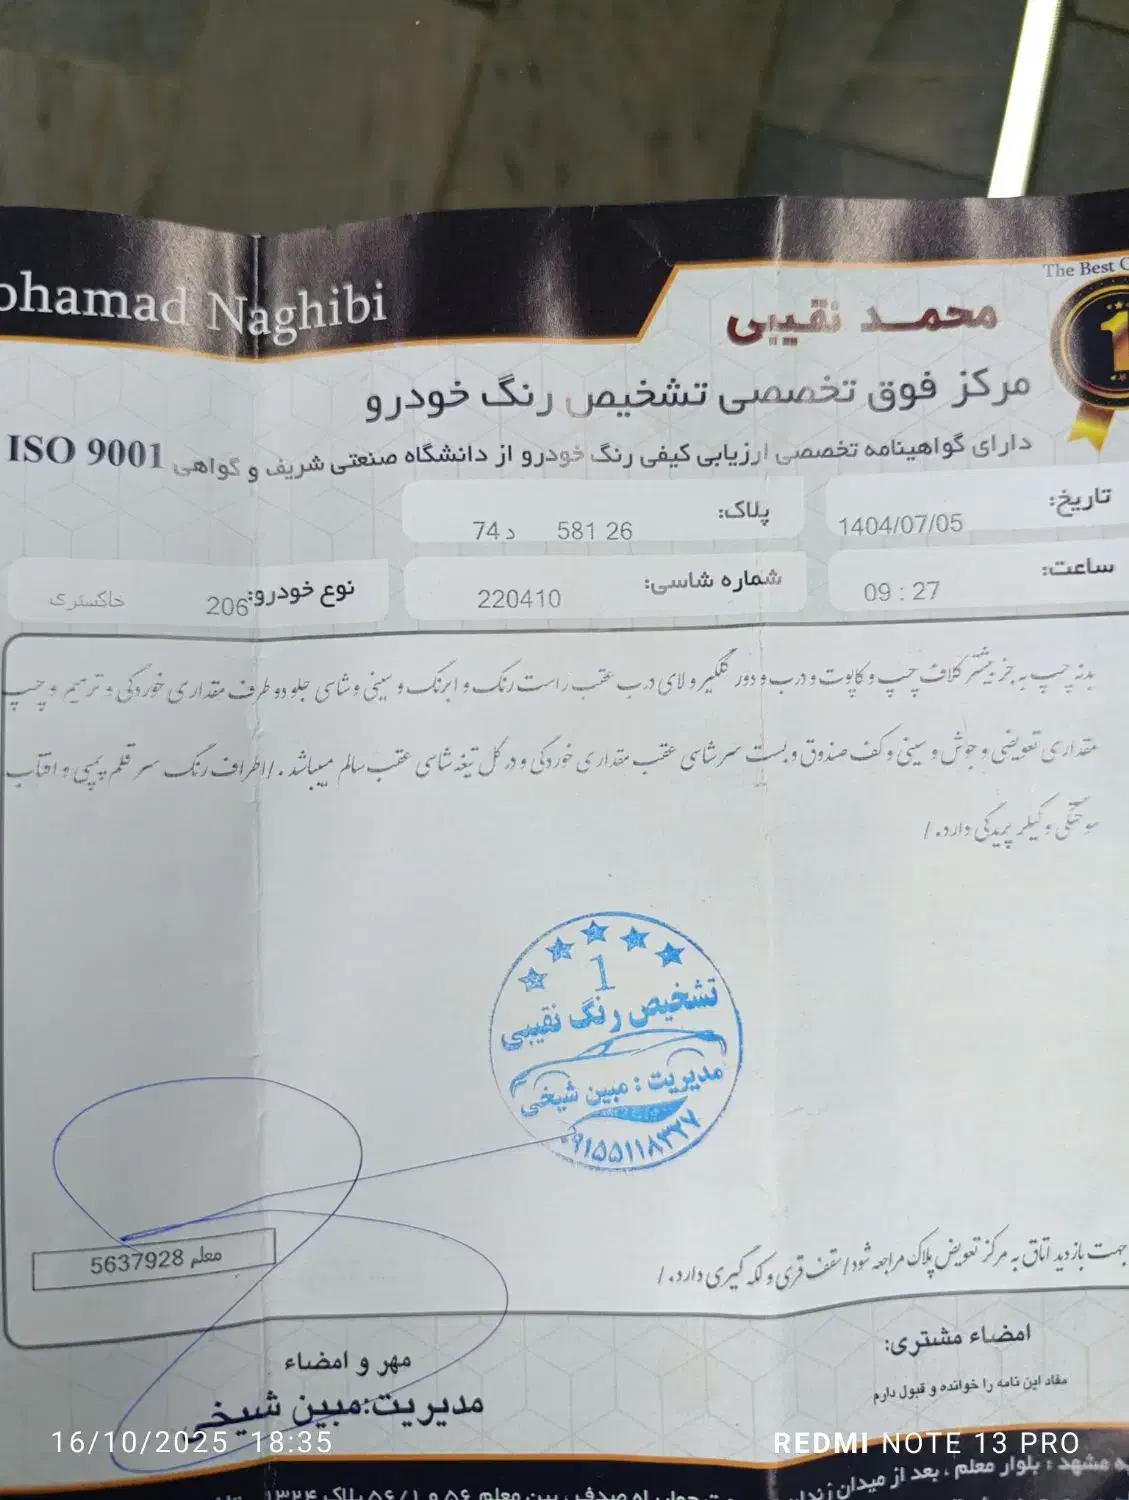 ohamad Naghibi
The Best
محمد نقیبی
1
مرکز فوق تخصصی تشخیص رنگ خودرو
دارای گواهینامه تخصصی ارزیابی کیفی رنگ خودرو از دانشگاه صنعتی شریف و گواهی ISO 9001
تاریخ: 1404/07/05
پلاک: 26 581 د 74
ساعت: 09 : 27
شماره شاسی: 220410
نوع خودرو: 206 خاکستری
بدنه چپ به جز بیشتر کلاف چپ و کاپوت و درب و دور گلگیر و لای درب عقب راست رنگ و ابرنگ و سینی و شاسی جلو دو طرف مقداری خوردگی و ترمیم و چپ
مقداری تعویضی و جوش و سینی و کف صندوق و بست سر شاسی عقب مقداری خوردگی و در کل تیغه شاسی عقب سالم میباشد ./اطراف رنگ سر قلم پمپی و افتاب
سوختگی و کیلر پریدگی دارد./
1
تشخیص رنگ نقیبی
مدیریت : مبین شیخی
۰۹۱۵۵۱۱۸۳۲۷
معلم 5637928
جهت بازدید اتاق به مرکز تعویض پلاک مراجعه شود/سقف قری و لکه گیری دارد./
امضاء مشتری:
مفاد این نامه را خوانده و قبول دارم
مهر و امضاء
مدیریت:مبین شیخی
16/10/2025 18:35
REDMI NOTE 13 PRO
مشهد : بلوار معلم ، بعد از میدان
صدف ، بین معلم ۵۴ و ۵۶/۱ پلاک ۱۳۲۴